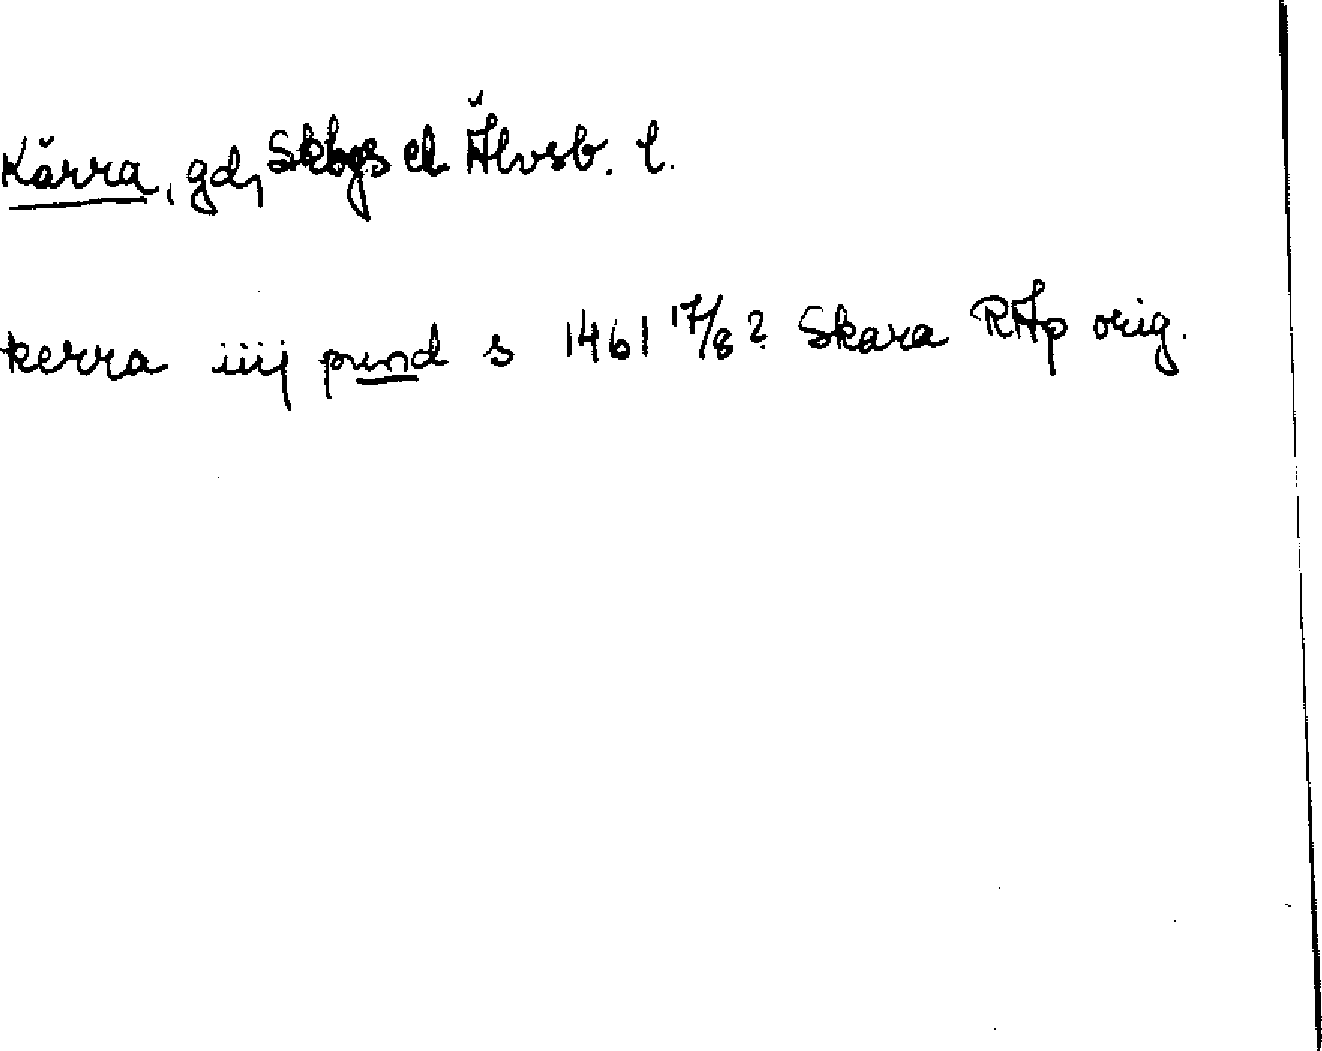 Kärra, gd, Skbgs el Älvsb. l.
kerra iiij pund s 1461 17/8? Skara RAp orig.